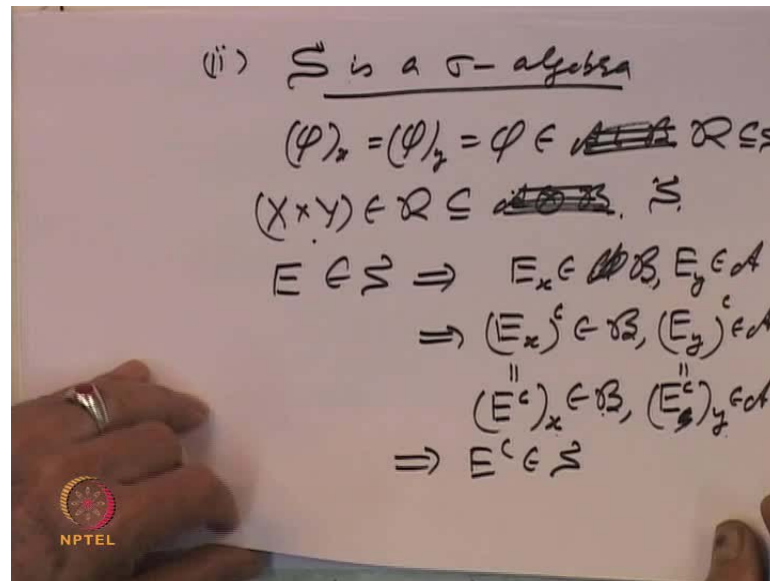 (ii) S is a σ-algebra
(φ)ₓ = (φ)ᵧ = φ ∈ R ⊆ S
(X × Y) ∈ R ⊆ S.
E ∈ S ⇒ Eₓ ∈ B, Eᵧ ∈ A
⇒ (Eₓ)ᶜ ∈ B, (Eᵧ)ᶜ ∈ A
|| ||
(Eᶜ)ₓ ∈ B, (Eᶜ)ᵧ ∈ A
⇒ Eᶜ ∈ S
NPTEL